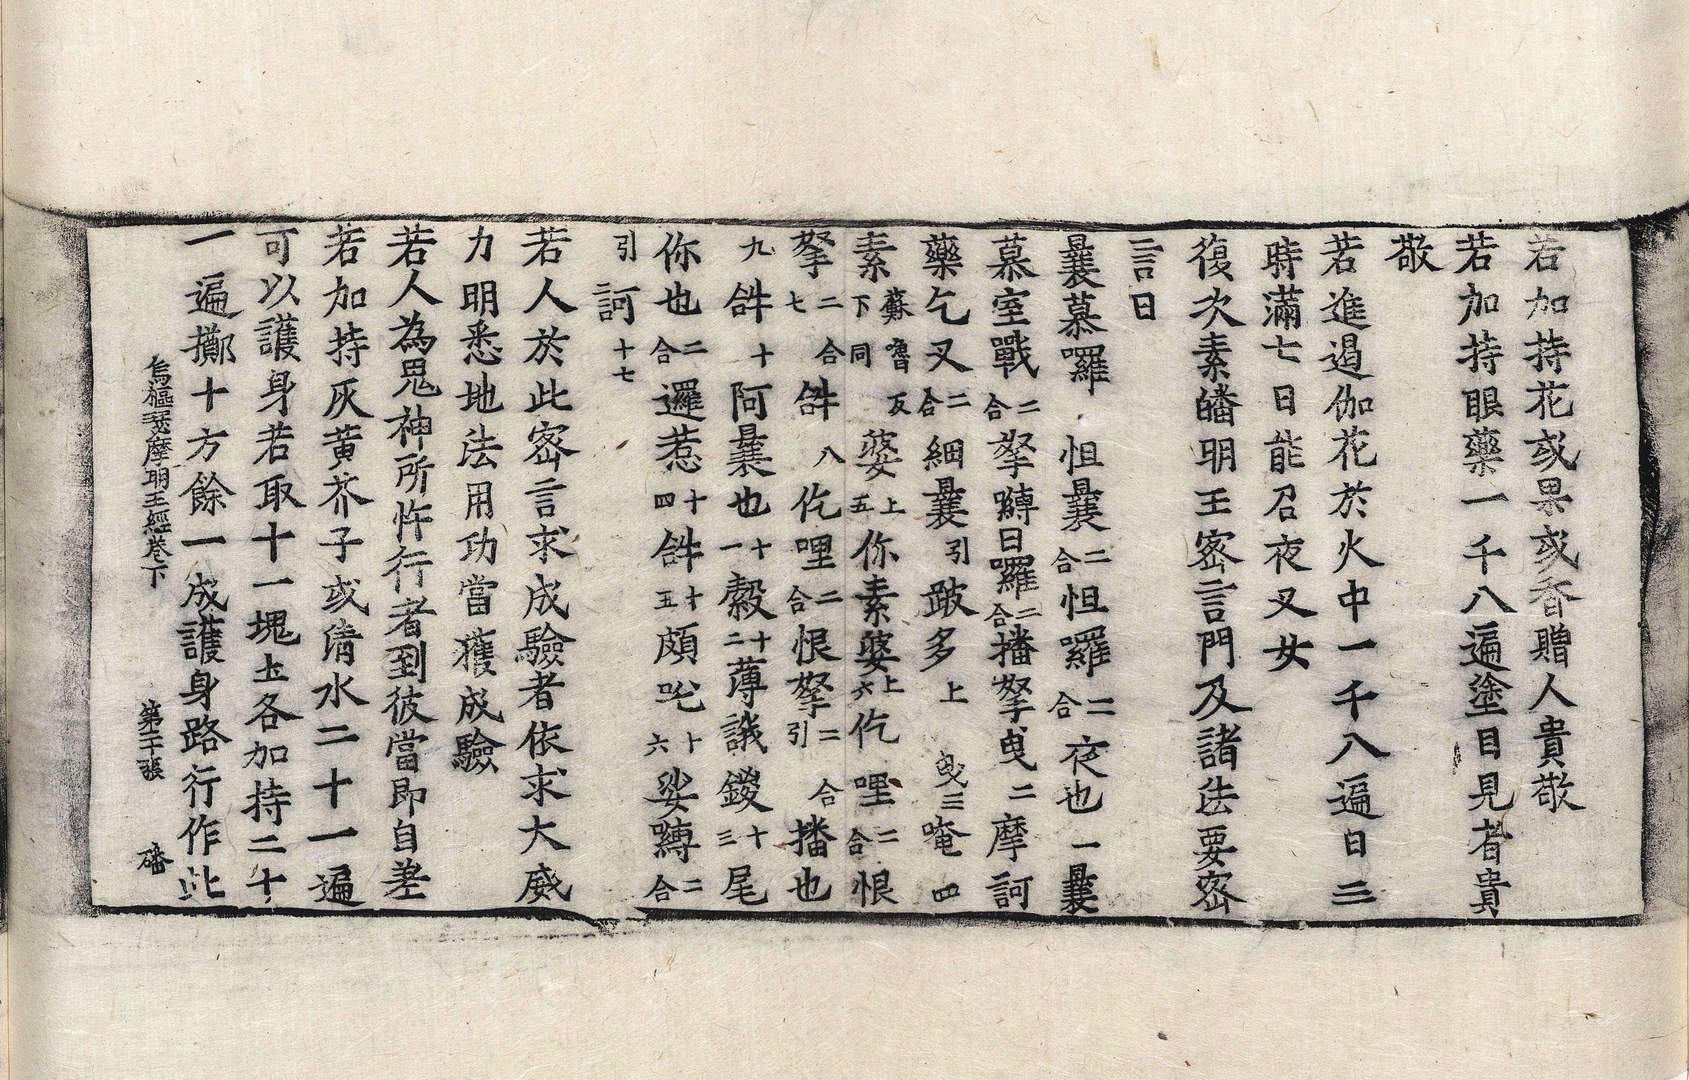 若加持花或果或香贈人貴敬
若加持眼藥一千八遍塗目見者貴
敬
若進遏伽花於火中一千八遍日三
時滿七日能召夜叉女
復次素皤明王密言門及諸法要密
言曰
曩慕囉怛曩二合怛囉二合夜也一曩
慕室戰二合拏嚩日囉二合播拏曳二摩訶
藥乞叉二合細曩引跛多上曳三唵四
素蘇嚕反下同婆上五你素婆上六仡哩二合恨
拏二合七𤙖八仡哩二合恨拏二合引播也
九𤙖十阿曩也十一縠十二薄誐鑁十三尾
你也二合邏惹十四𤙖十五頗吒十六娑嚩二合
引訶十七
若人於此密言求成驗者依求大威
力明悉地法用功當獲成驗
若人為鬼神所忤行者到彼當即自差
若加持灰黃芥子或淸水二十一遍
可以護身若取十一塊土各加持二十
一遍擲十方餘一成護身路行作此
烏樞瑟摩明王經卷下 第二十張 磻